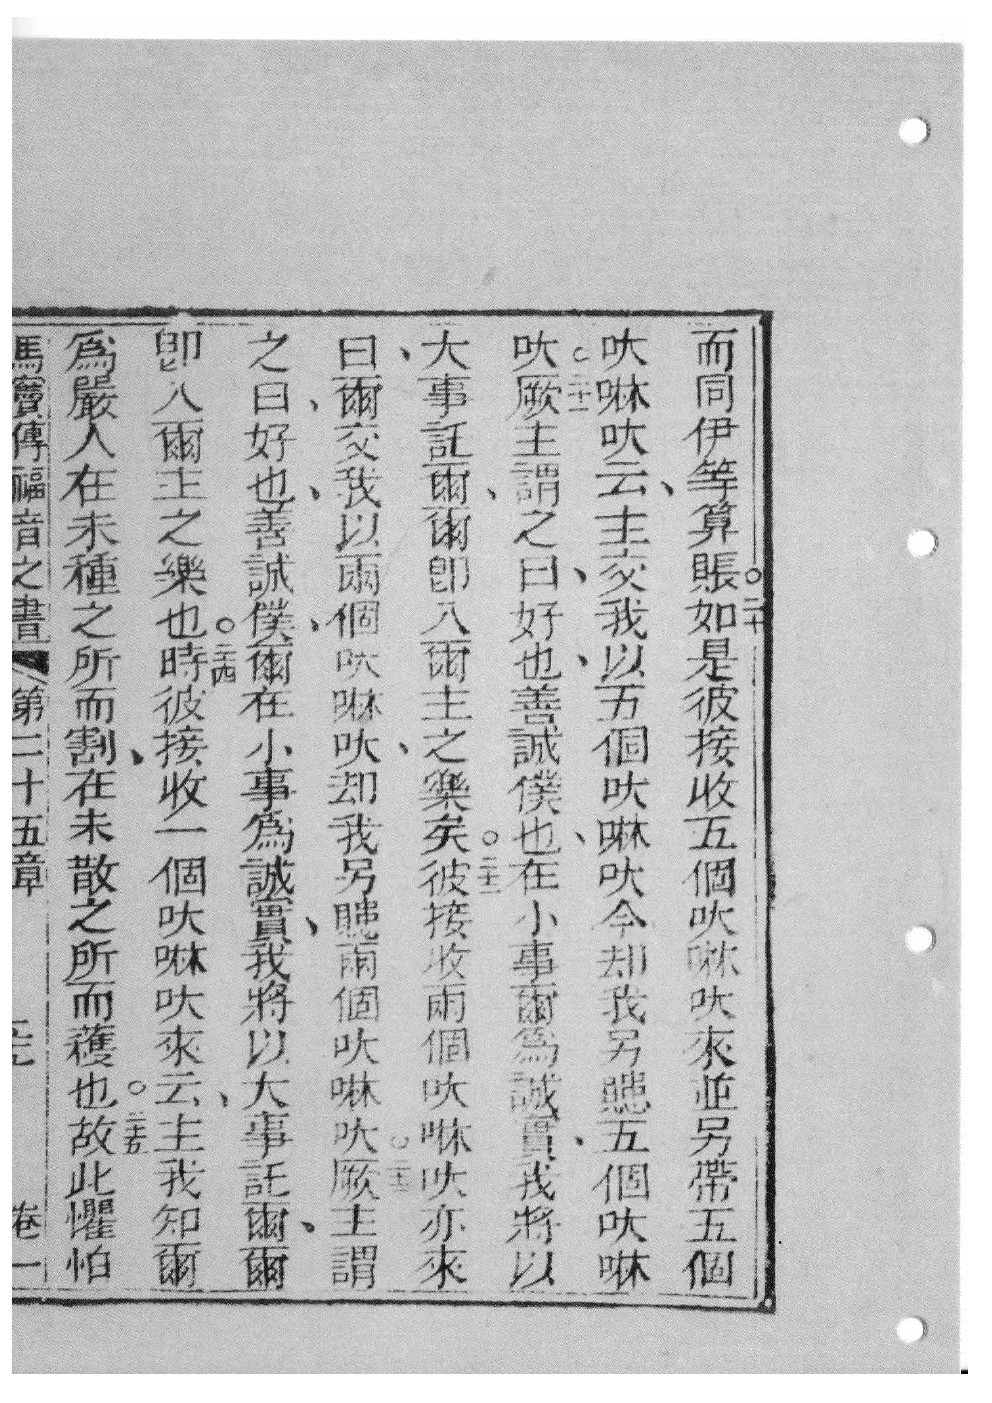 而同伊等算賬。二十如是彼接收五個吠㖿吠來並另帶五個
吠㖿吠云、主交我以五個吠㖿吠今却我另賺五個吠㖿
吠。二十一厥主謂之曰、好也、善誠僕也、在小事爾為誠實、我將以
大事託爾、爾卽入爾主之樂矣。二十二彼接收兩個吠㖿吠亦來
曰、爾交我以兩個吠㖿吠、却我另賺兩個吠㖿吠。二十三厥主謂
之曰、好也、善誠僕、爾在小事為誠實、我將以大事託爾、爾
卽入爾主之樂也。二十四時彼接收一個吠㖿吠來云、主我知爾
為嚴人在未種之所而割、在未散之所而穫也。二十五故此懼怕
馬竇傳福音之書 第二十五章 卷一